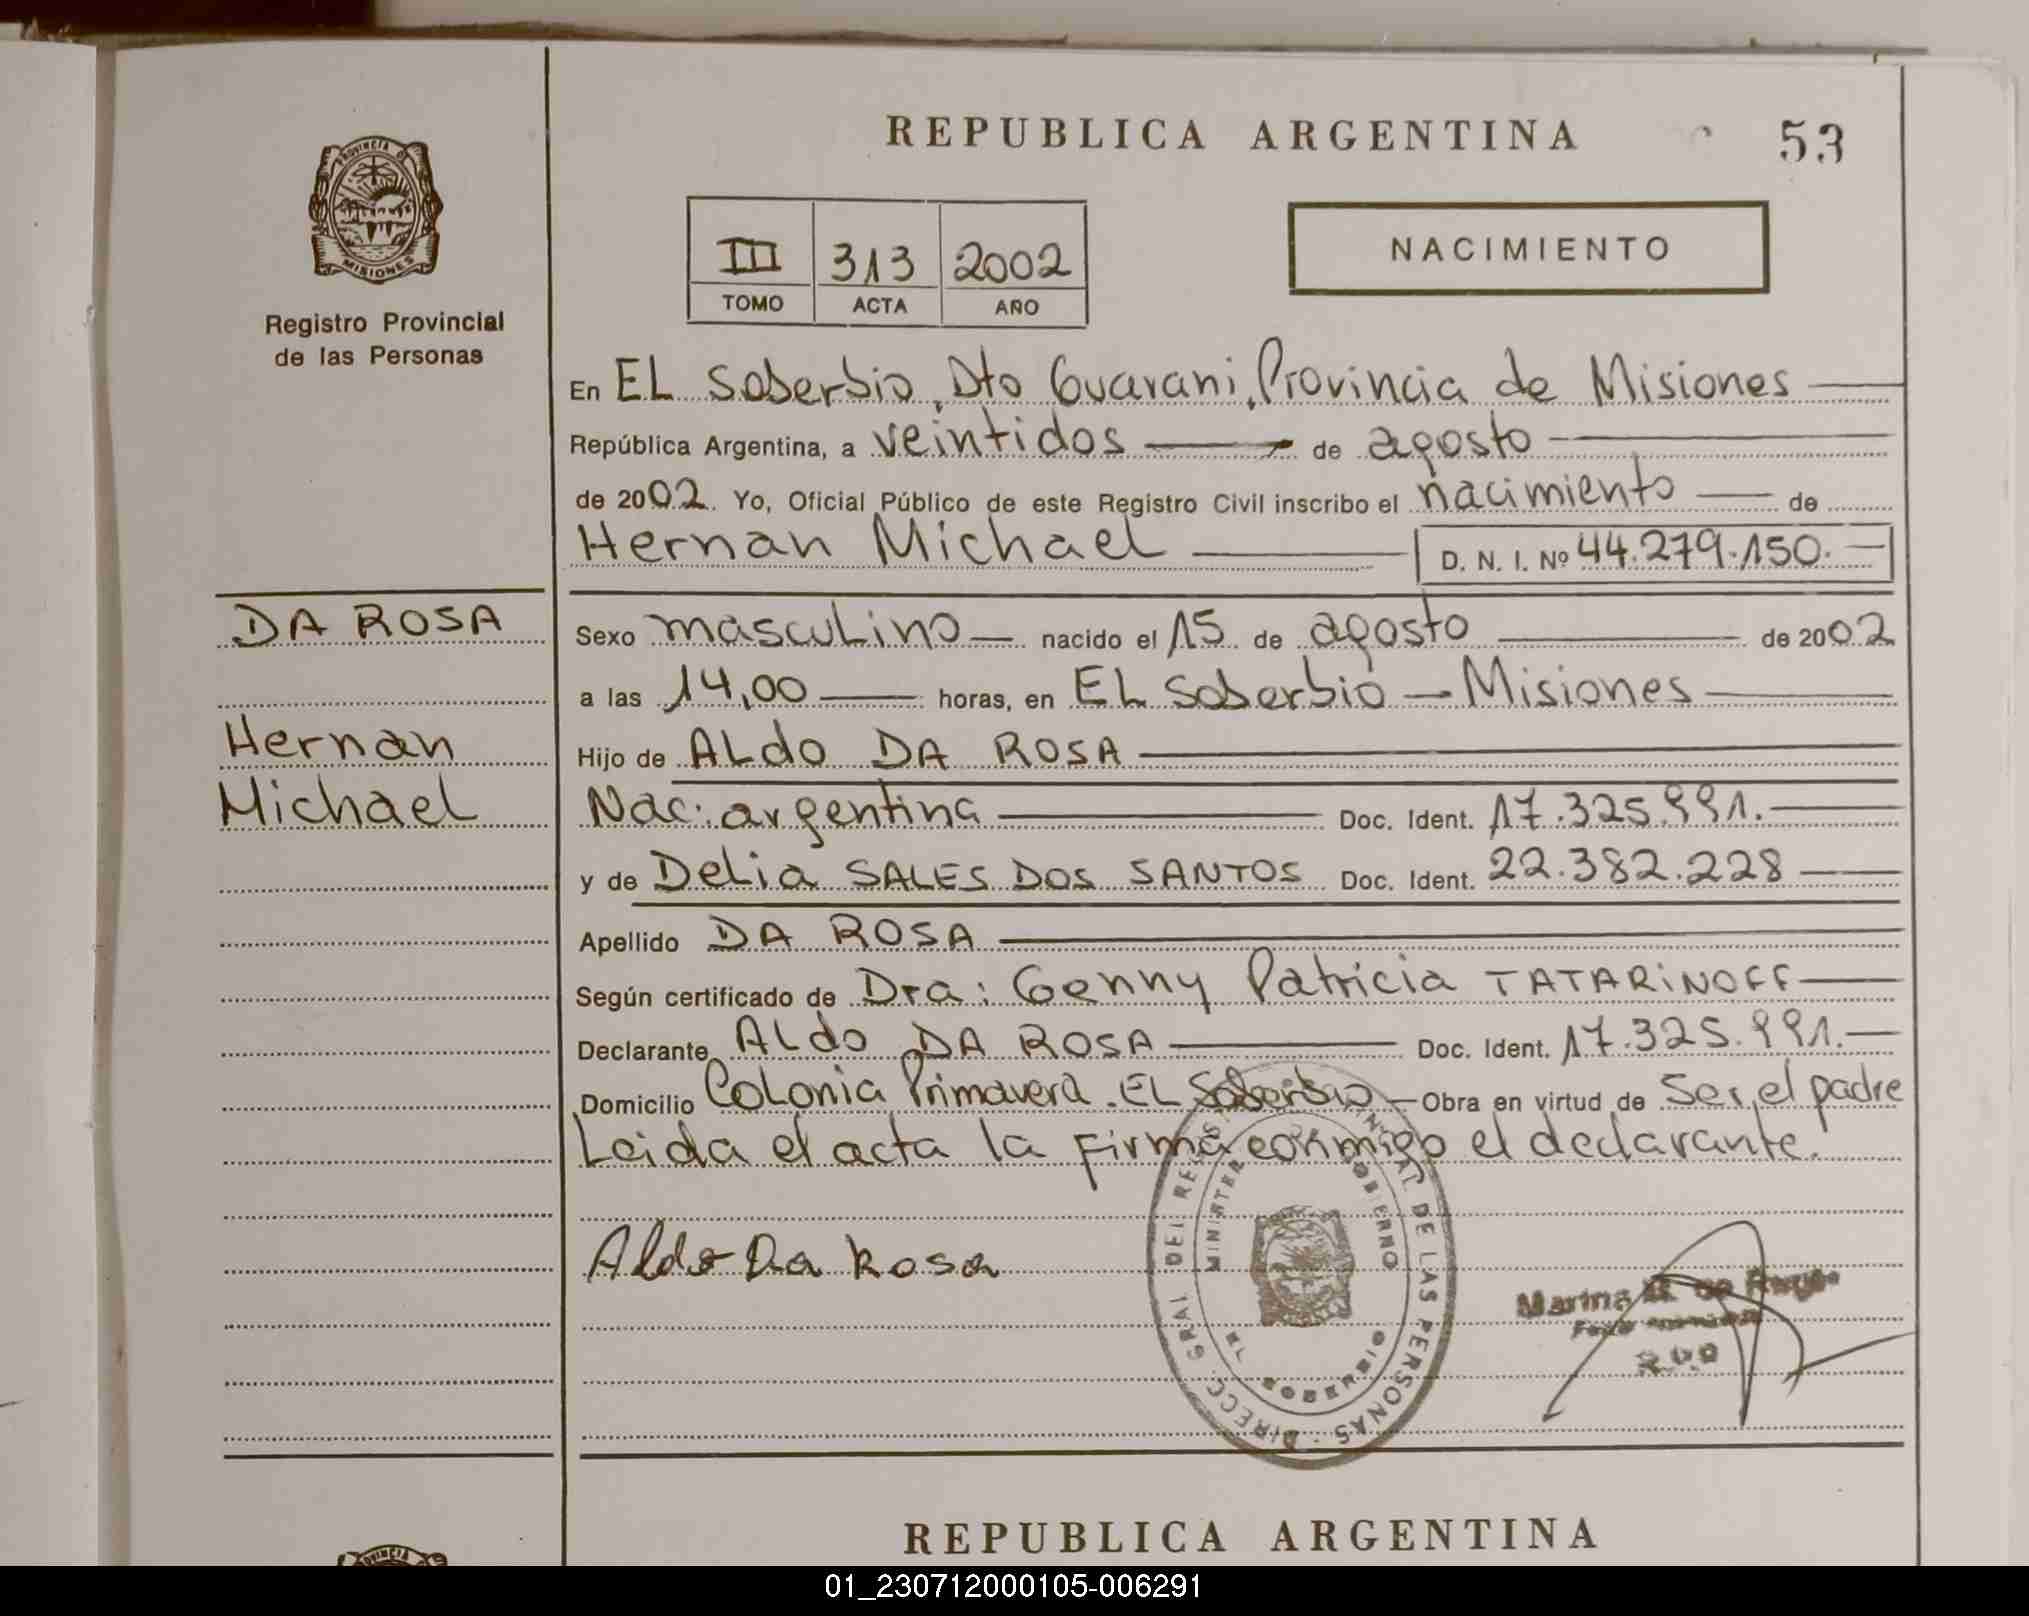 REPUBLICA ARGENTINA
53
PROVINCIA DE
MISIONES
Registro Provincial
de las Personas
III 313 2002
TOMO ACTA AÑO
NACIMIENTO
En EL Soberbio, Dto Guarani, Provincia de Misiones
República Argentina, a veintidos de agosto
de 2002. Yo, Oficial Público de este Registro Civil inscribo el nacimiento de
Hernan Michael D. N. I. Nº 44.279.150.
DA ROSA
Hernan
Michael
Sexo masculino nacido el 15 de agosto de 2002
a las 14,00 horas, en EL Soberbio - Misiones
Hijo de ALdo DA ROSA
Nac: argentina Doc. Ident. 17.325.991.
y de DeLia SALES DOS SANTOS Doc. Ident. 22.382.228
Apellido DA ROSA
Según certificado de Dra: Genny Patricia TATARiNOFF
Declarante ALdo DA ROSA Doc. Ident. 17.325.991.
Domicilio Colonia Primavera. EL Soberbio Obra en virtud de Ser el padre
Leida el acta la firma conmigo el declarante.
Aldo Da Rosa
DIRECC. GRAL DEL DE LAS PERSONAS
EL SOBERBIO
Marina
REPUBLICA ARGENTINA
01_230712000105-006291